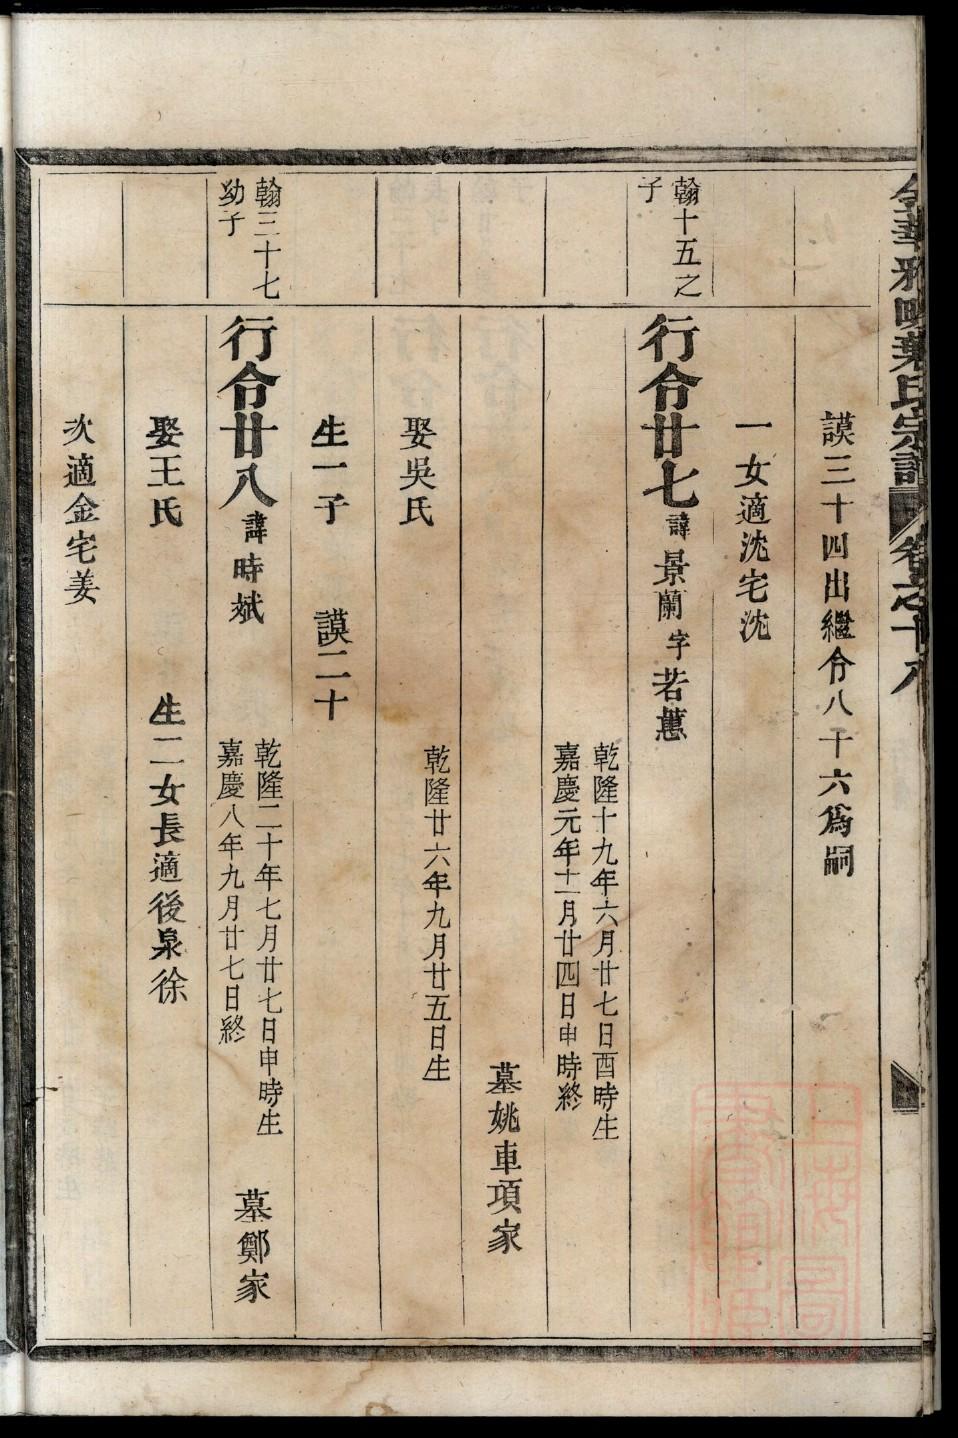 金華雅畈葉氏宗譜 卷之十八
謨三十四出繼令八十六爲嗣
一女適沈宅沈
翰十五之
子
行令廿七 諱景蘭字若蕙
乾隆十九年六月廿七日酉時生
嘉慶元年十一月廿四日申時終
墓姚車項家
娶吳氏
乾隆廿六年九月廿五日生
生一子 謨二十
翰三十七
幼子
行令廿八 諱時斌
乾隆二十年七月廿七日申時生
嘉慶八年九月廿七日終
墓鄭家
娶王氏 生二女長適後泉徐
次適金宅姜